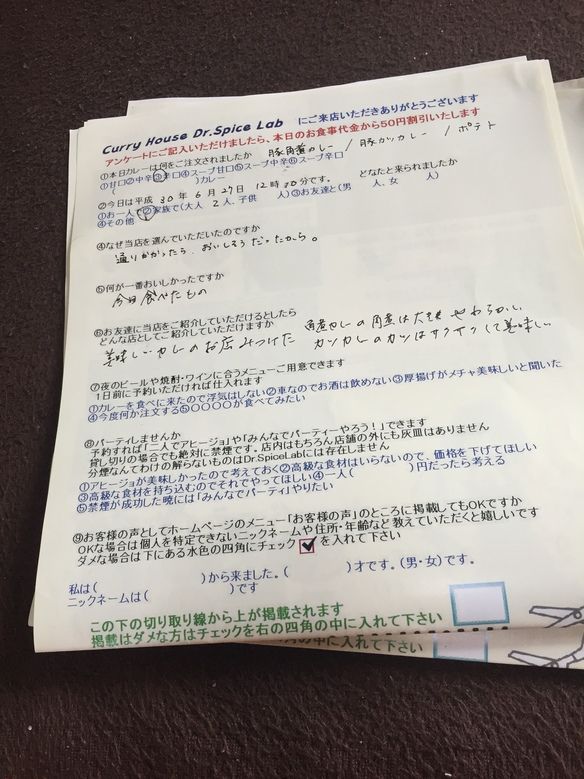 Curry House Dr.Spice Lab にご来店いただきありがとうございます
アンケートにご記入いただけましたら、本日のお食事代金から50円割引いたします
①本日カレーは何をご注文されましたか 豚角煮カレー / 豚カツカレー / ポテト
①甘口②中辛③辛口④スープ甘口⑤スープ中辛⑥スープ辛口
( )カレー
②今日は平成 30 年 6 月 27日 12時 30分です。 どなたと来られましたか
①お一人で②家族で(大人 2人、子供 人)③お友達と(男 人、女 人)
④その他
④なぜ当店を選んでいただいたのですか
通りがかったら、おいしそうだったから。
⑤何が一番おいしかったですか
今日食べたもの
⑥お友達に当店をご紹介していただけるとしたら
どんな店としてご紹介していただけますか
美味しいカレーのお店みつけた 角煮カレーの角煮は やわらかい
カツカレーのカツはサクサクして美味しい
⑦夜のビールや焼酎・ワインに合うメニューご用意できます
1日前に予約いただければ仕入れます
①カレーを食べに来たので浮気はしない②車なのでお酒は飲めない③厚揚げがメチャ美味しいと聞いた
④今度何か注文する⑤〇〇〇〇が食べてみたい
⑧パーティしませんか
予約すれば「二人でアヒージョ」や「みんなでパーティーやろう!」できます
貸し切りの場合でも絶対に禁煙です。店内はもちろん店舗の外にも灰皿はありません
分煙なんてわけの解らないものはDr.SpiceLabには存在しません
①アヒージョが美味しかったので考えておく②高級な食材はいらないので、価格を下げてほしい
③高級な食材を持ち込むのでそれでやってほしい④一人( )円だったら考える
⑤禁煙が成功した暁には「みんなでパーティ」やりたい
⑨お客様の声としてホームページのメニュー「お客様の声」のところに掲載してもOKですか
OKな場合は個人を特定できないニックネームや住所・年齢など教えていただくと嬉しいです
ダメな場合は下にある水色の四角にチェック を入れて下さい
私は( )から来ました。( )才です。(男・女)です。
ニックネームは( )です
この下の切り取り線から上が掲載されます
掲載はダメな方はチェックを右の四角の中に入れて下さい
の中に入れて下さい